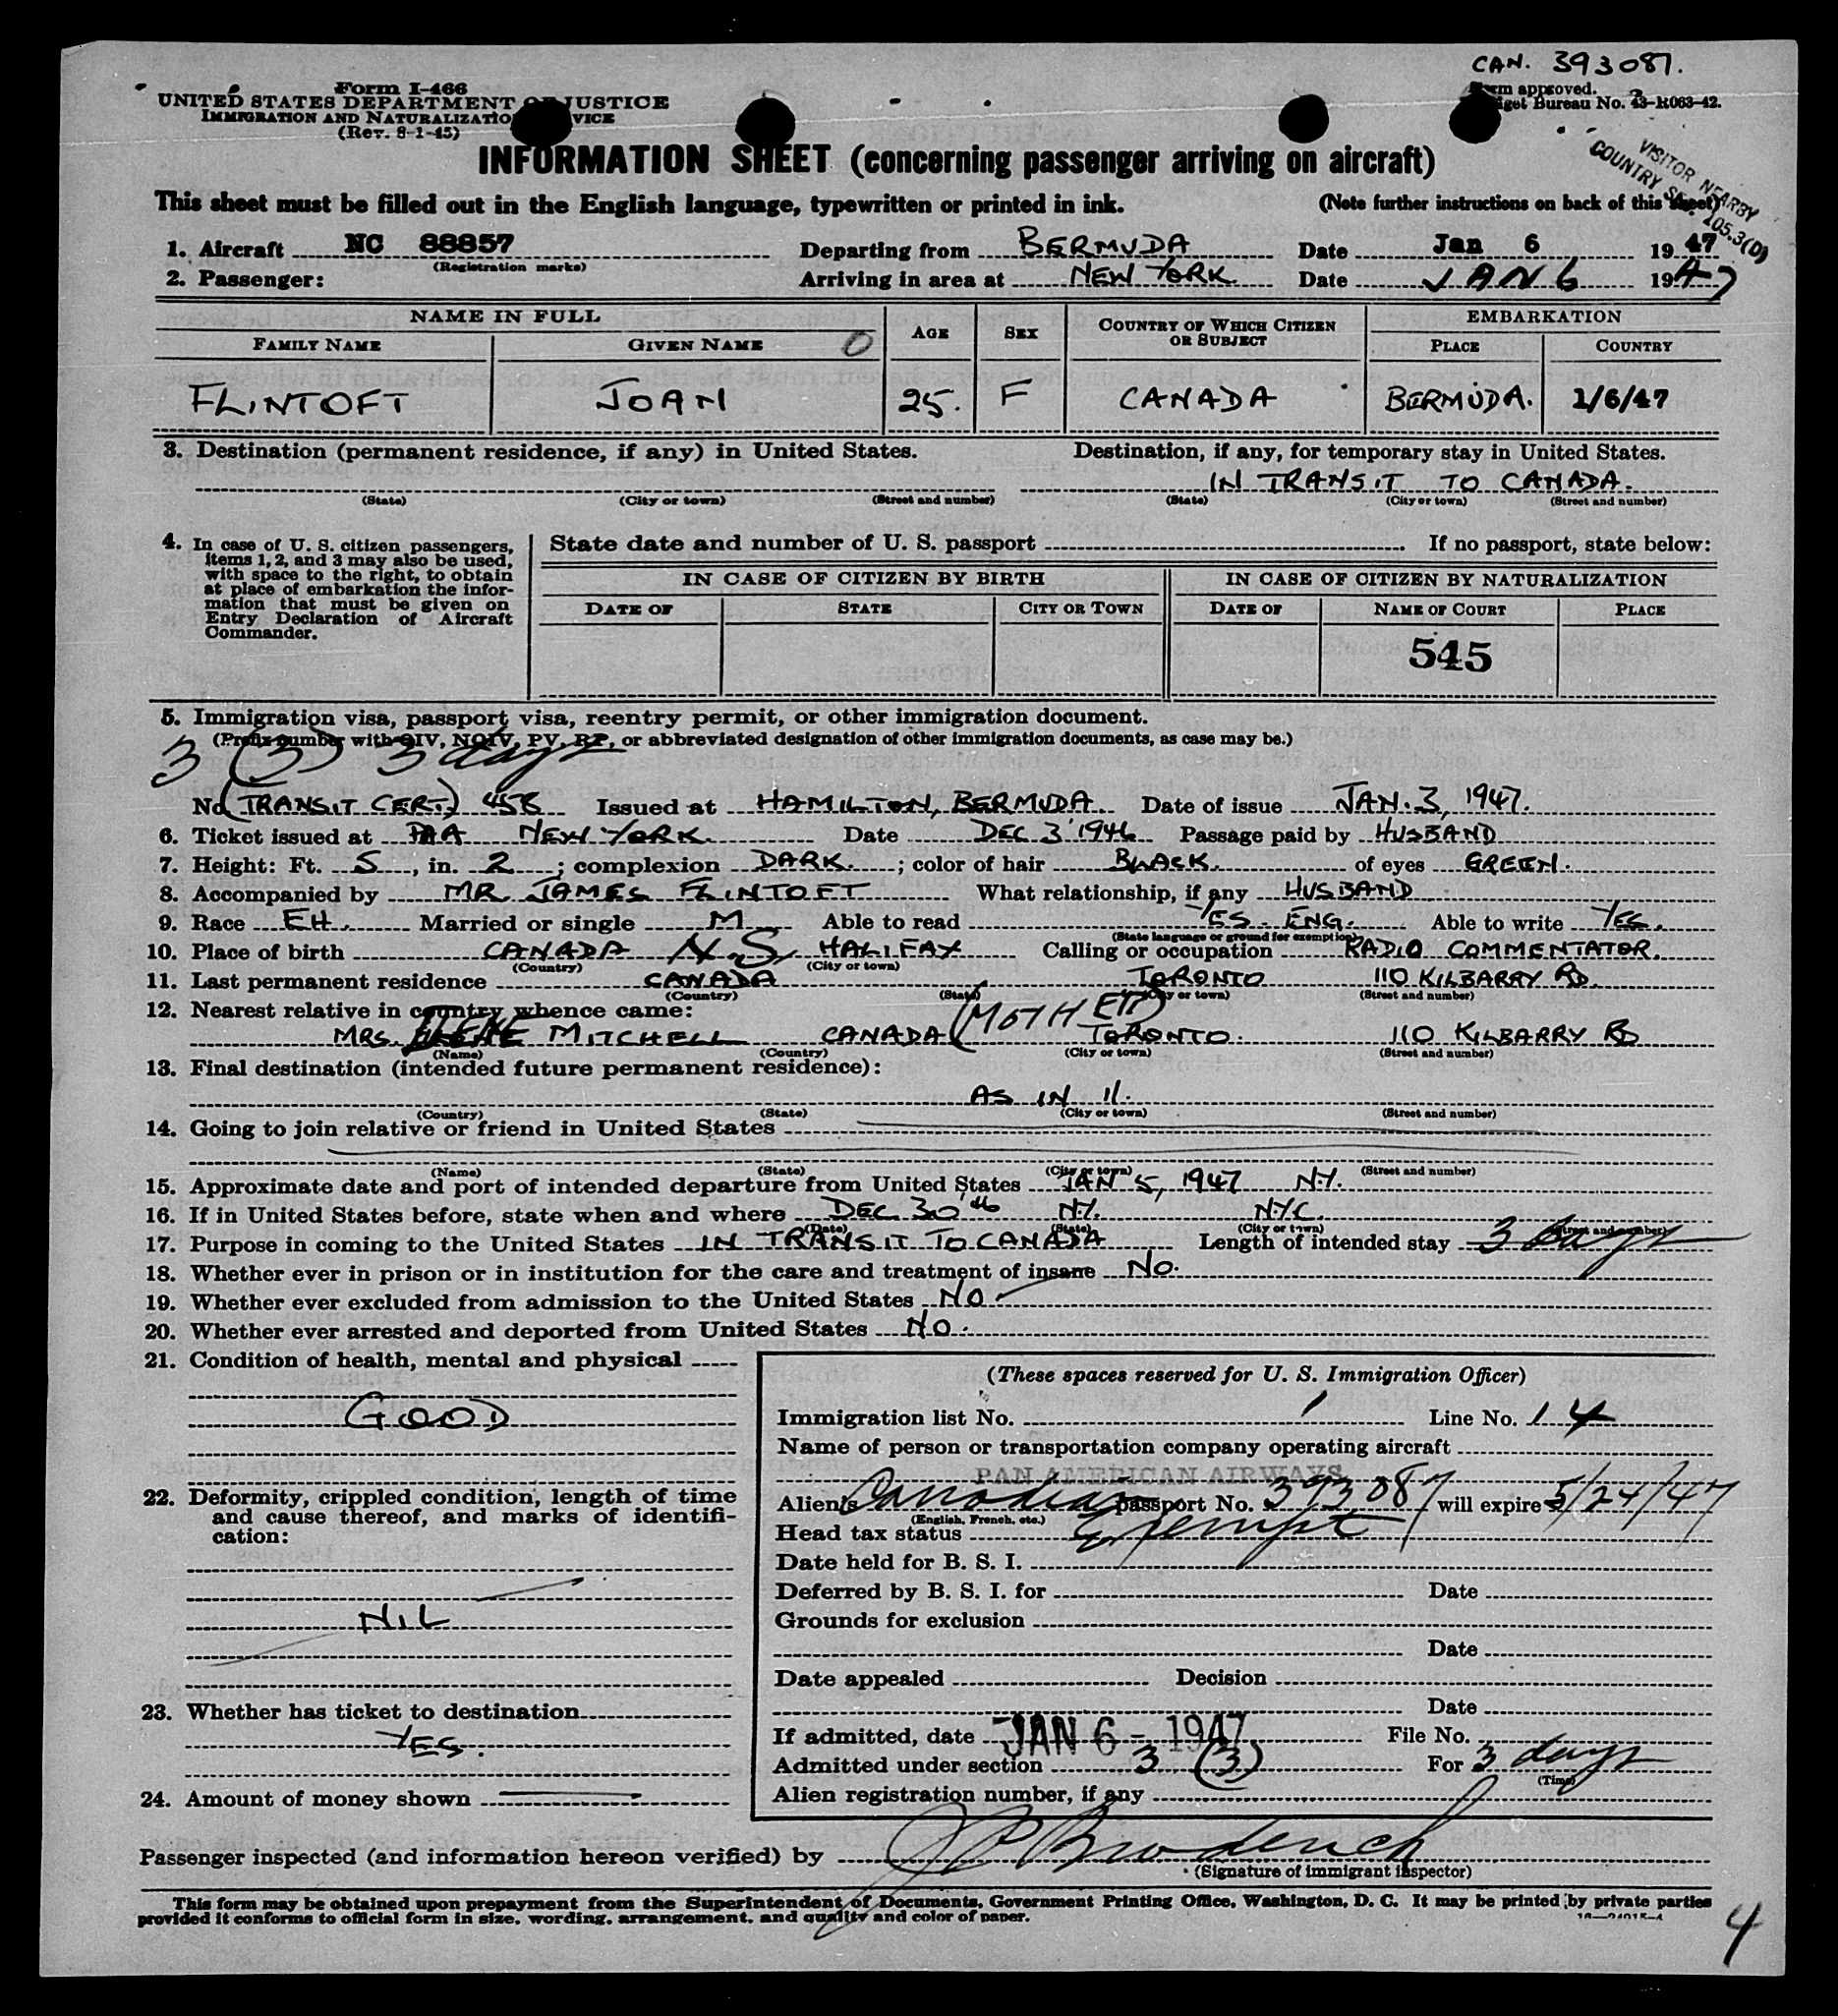 CAN. 393087.
Form I-466
UNITED STATES DEPARTMENT OF JUSTICE
IMMIGRATION AND NATURALIZATION SERVICE
(Rev. 8-1-45)
Form approved.
Budget Bureau No. 43-R063-42.
VISITOR NEARBY
COUNTRY SEC. 105.3(D)
INFORMATION SHEET (concerning passenger arriving on aircraft)
This sheet must be filled out in the English language, typewritten or printed in ink. (Note further instructions on back of this sheet)
1. Aircraft NC 88857 Departing from BERMUDA Date Jan 6 1947
(Registration marks)
2. Passenger: Arriving in area at NEW YORK Date JAN 6 1947
NAME IN FULL AGE SEX COUNTRY OF WHICH CITIZEN OR SUBJECT EMBARKATION
FAMILY NAME GIVEN NAME 0 PLACE COUNTRY
FLINTOFT JOAN 25. F CANADA BERMUDA. 1/6/47
3. Destination (permanent residence, if any) in United States. Destination, if any, for temporary stay in United States.
IN TRANSIT TO CANADA.
(State) (City or town) (Street and number) (State) (City or town) (Street and number)
4. In case of U. S. citizen passengers, items 1, 2, and 3 may also be used, with space to the right, to obtain at place of embarkation the information that must be given on Entry Declaration of Aircraft Commander.
State date and number of U. S. passport . If no passport, state below:
IN CASE OF CITIZEN BY BIRTH IN CASE OF CITIZEN BY NATURALIZATION
DATE OF STATE CITY OR TOWN DATE OF NAME OF COURT PLACE
545
5. Immigration visa, passport visa, reentry permit, or other immigration document.
(Prefix number with QIV, NQIV, PV, RP, or abbreviated designation of other immigration documents, as case may be.)
3 (3) 3 days
No (TRANSIT CERT.) 458 Issued at HAMILTON, BERMUDA Date of issue JAN. 3, 1947.
6. Ticket issued at PAA NEW YORK. Date DEC 3 1946 Passage paid by HUSBAND
7. Height: Ft. 5, in. 2; complexion DARK.; color of hair BLACK. of eyes GREEN.
8. Accompanied by MR. JAMES FLINTOFT What relationship, if any HUSBAND
9. Race EH. Married or single M Able to read YES. ENG. Able to write YES.
(State language or ground for exemption)
10. Place of birth CANADA N.S. HALIFAX Calling or occupation RADIO COMMENTATOR.
(Country) (City or town)
11. Last permanent residence CANADA TORONTO 110 KILBARRY RD.
(Country) (State) (City or town) (Street and number)
12. Nearest relative in country whence came:
MRS. MITCHELL CANADA (MOTHER) TORONTO. 110 KILBARRY RD
(Name) (Country) (City or town) (Street and number)
13. Final destination (intended future permanent residence):
AS IN 11.
(Country) (State) (City or town) (Street and number)
14. Going to join relative or friend in United States
(Name) (State) (City or town) (Street and number)
15. Approximate date and port of intended departure from United States JAN 5, 1947 N.Y.
16. If in United States before, state when and where DEC 30th N.Y. NYC.
(Date) (State) (City or town) (Street and number)
17. Purpose in coming to the United States IN TRANSIT TO CANADA Length of intended stay 3 days
18. Whether ever in prison or in institution for the care and treatment of insane NO.
19. Whether ever excluded from admission to the United States NO.
20. Whether ever arrested and deported from United States NO.
21. Condition of health, mental and physical
GOOD
22. Deformity, crippled condition, length of time and cause thereof, and marks of identification:
NIL
23. Whether has ticket to destination
YES.
24. Amount of money shown
(These spaces reserved for U. S. Immigration Officer)
Immigration list No. 1 Line No. 14
Name of person or transportation company operating aircraft
PAN AMERICAN AIRWAYS
Alien's Canadian passport No. 393087 will expire 5/24/47
(English, French, etc.)
Head tax status Exempt
Date held for B. S. I.
Deferred by B. S. I. for Date
Grounds for exclusion
Date
Date appealed Decision
Date
If admitted, date JAN 6 - 1947 File No.
Admitted under section 3 (3) For 3 days
(Time)
Alien registration number, if any
Passenger inspected (and information hereon verified) by
(Signature of immigrant inspector)
This form may be obtained upon prepayment from the Superintendent of Documents, Government Printing Office, Washington, D. C. It may be printed by private parties
provided it conforms to official form in size, wording, arrangement, and quality and color of paper.
4